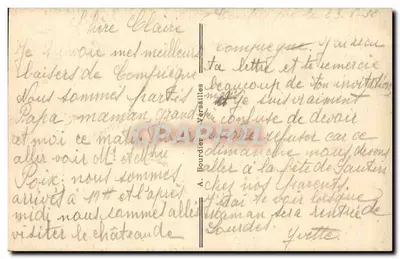 Chère Claire
Je t'envoie mes meilleurs
baisers de Compiègne
Nous sommes partis
Papa, maman, grand
et moi ce matin
aller voir M. et
Poix; nous sommes
arrivés à 11H et l'après
midi nous sommes allés
visiter le château de
23-8-
Compiègne. J'ai reçu
ta lettre et te remercie
beaucoup de ton invitation
et je suis vraiment
confuse de devoir
refuser car ce
dimanche nous devons
aller à la fête de
chez nos parents.
J'irai te voir lorsque
maman sera rentrée de
Lourdes.
Yvette
A. Bourdier - Versailles
CPARAMA